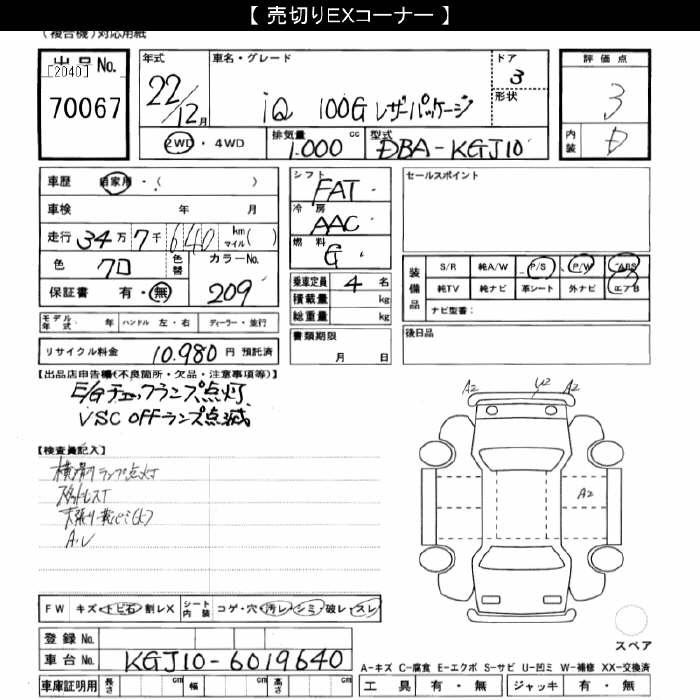 【 売切りEXコーナー 】
(複合機)対応用紙
出品No.
[2040]
70067
年式
22/12月
車名・グレード
iQ 100G レザーパッケージ
ドア
3
形状
評価点
3
内装
D
2WD ・ 4WD
排気量
1.000 cc
型式
DBA-KGJ10
車歴 自家用・( )
車検 年 月
走行 34万7千640 km マイル( )
色 クロ
色替
カラーNo.
209
保証書 有・無
モデル年式 年 ハンドル 左・右 ディーラー・並行
リサイクル料金 10.980円 預託済
シフト
FAT
冷房
AAC
燃料
G
乗車定員 4 名
積載量 kg
総重量 kg
書類期限
月 日
セールスポイント
装備品
S/R 純A/W P/S P/W ABS
純TV 純ナビ 革シート 外ナビ エアB
ナビ型番:
後日品
【出品店申告欄(不良箇所・欠品・注意事項等)】
E/Gチェックランプ点灯
VSC OFFランプ点滅
【検査員記入】
横滑りランプ点灯
A2 U2 A2
A2
FW キズ・トビ石・割レX シート内装 コゲ・穴・汚レ・シミ・破レ・スレ
登録No.
車台No. KGJ10-6019640
車庫証明用 長さ cm 幅 cm 高さ cm
スペア
A-キズ C-腐食 E-エクボ S-サビ U-凹ミ W-補修 XX-交換済
工具 有・無 ジャッキ 有・無